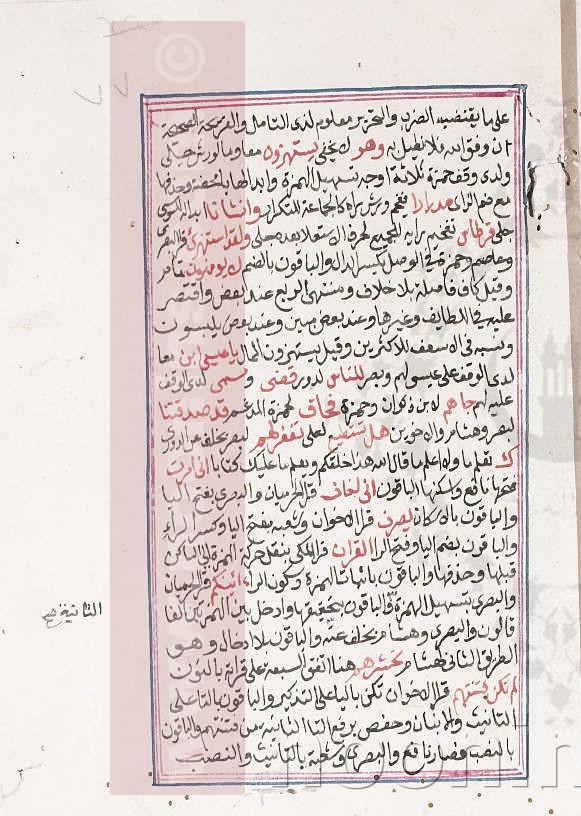 على ما يقتضيه الضرب والتحرير معلوم لدى التامل والقريحة الصحيحة
ان وفق الله فلا نطيل به وهو لا يخفى يستهزؤن معا وما لورش جلي
ولدى وقف حمزة ثلاثة اوجه تسهيل الهمزة وابدالها ياء محضة وحذفها
مع ضم الزاى مدرارا فخم ورش راه كالجماعة للتكرار وانشأنا ابداله للسوسي
جلي قرطاس تفخيم رايه للجميع لحرف الاستعلا بعده جلي ولقد استهزئ قرا البصرى
وعاصم وحمزة في الوصل بكسر الدال والباقون بالضم لا يومنون تام
وقيل كاف فاصلة بلا خلاف ومنتهى الربع عند بعض واقتصر
عليه في اللطايف وغيرها وعند بعض مبين وعند بعض يلبسون
ونسبه فى المسعف للاكثرين وقيل يستهزؤن الممال يا عيسى ابن معا
لدى الوقف على عيسى لهم وبصر للناس لدورى قضى و مسمى لدى الوقف
عليه لهم جاهم لابن ذكوان وحمزة فحاق لحمزة المدغم وقد صدقتنا
لبصر وهشام والاخوين هل تستطيع لعلى تغفر لهم لبصر بخلف عن الدورى
ك تعلم ما ولا اعلم ما قال الله هذا خلقكم ويعلم ما عليك كتابا انى امرت
فتحها نافع واسكنها الباقون انى اخاف قرا الحرميان والبصرى بفتح اليا
والباقون بالاسكان يصرف قرا الاخوان وشعبة بفتح اليا وكسر الراء
والباقون بضم اليا وفتح الرا القران قرا المكى بنقل حركة الهمزة الى الساكن
قبلها وحذفها والباقون باثبات الهمزة وسكون الراء ائينكم قرا الحرميان
والبصرى بتسهيل الهمزة والباقون بتحقيقها وادخل بين الهمزتين الفا
قالون والبصرى وهشام بخلف عنه والباقون بلا ادخال وهو
الطريق الثانى لهشام نحشرهم هنا اتفق السبعة على قراته بالنون
لم تكن فتنتهم قرا الاخوان يكن باليا على التذكير والباقون بالتا على
التانيث والابنان وحفص برفع التا الثانية من فتنتهم والباقون
بالنصب فصار نافع والبصرى وشعبة بالتانيث والنصب